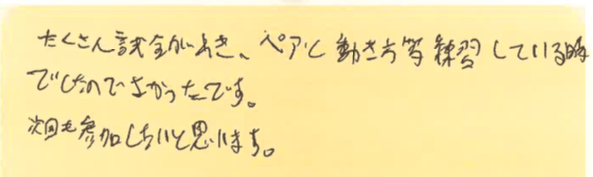 たくさん試合ができ、ペアと動き方等練習している時
でしたのでよかったです。
次回も参加したいと思います。